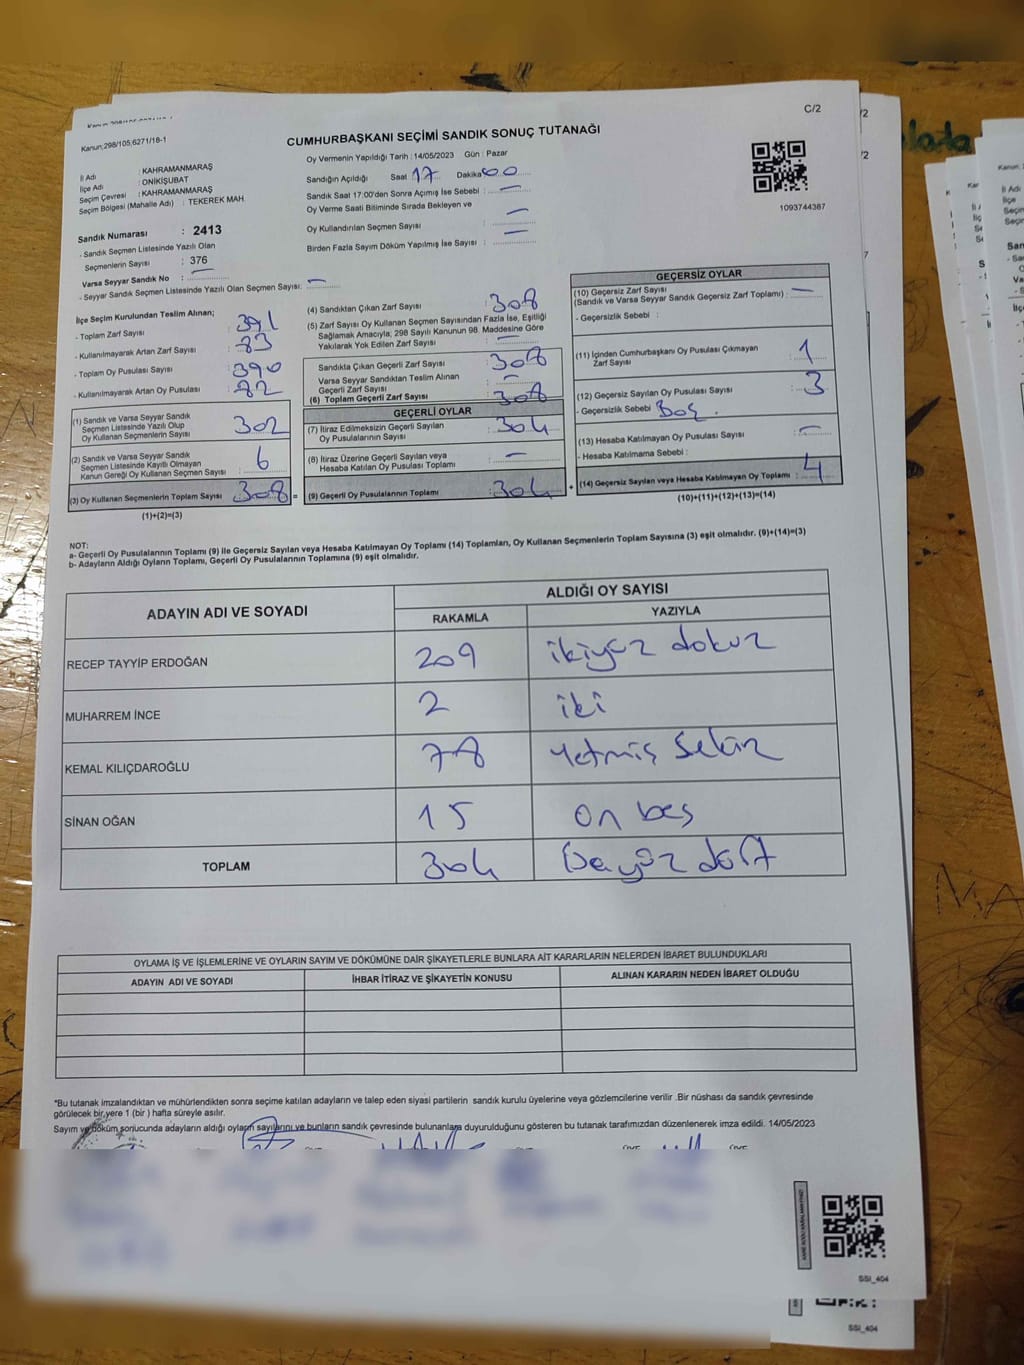 C/2
Kanun;298/105,6271/18-1
CUMHURBAŞKANI SEÇİMİ SANDIK SONUÇ TUTANAĞI
İl Adı : KAHRAMANMARAŞ
İlçe Adı : ONİKİŞUBAT
Seçim Çevresi : KAHRAMANMARAŞ
Seçim Bölgesi (Mahalle Adı) : TEKEREK MAH.
Sandık Numarası : 2413
- Sandık Seçmen Listesinde Yazılı Olan
Seçmenlerin Sayısı : 376
Varsa Seyyar Sandık No : —
- Seyyar Sandık Seçmen Listesinde Yazılı Olan Seçmen Sayısı: —
Oy Vermenin Yapıldığı Tarih : 14/05/2023 Gün : Pazar
Sandığın Açıldığı Saat 17 Dakika 00
Sandık Saat 17:00'den Sonra Açımış İse Sebebi : —
Oy Verme Saati Bitiminde Sırada Bekleyen ve
Oy Kullandırılan Seçmen Sayısı : —
Birden Fazla Sayım Döküm Yapılmış İse Sayısı : —
1093744387
İlçe Seçim Kurulundan Teslim Alınan;
- Toplam Zarf Sayısı : 391
- Kullanılmayarak Artan Zarf Sayısı : 83
- Toplam Oy Pusulası Sayısı : 390
- Kullanılmayarak Artan Oy Pusulası : 82
(1) Sandık ve Varsa Seyyar Sandık
Seçmen Listesinde Yazılı Olup
Oy Kullanan Seçmenlerin Sayısı : 302
(2) Sandık ve Varsa Seyyar Sandık
Seçmen Listesinde Kayıtlı Olmayan
Kanun Gereği Oy Kullanan Seçmen Sayısı : 6
(3) Oy Kullanan Seçmenlerin Toplam Sayısı : 308 =
(1)+(2)=(3)
(4) Sandıktan Çıkan Zarf Sayısı : 308
(5) Zarf Sayısı Oy Kullanan Seçmen Sayısından Fazla İse, Eşitliği
Sağlamak Amacıyla; 298 Sayılı Kanunun 98. Maddesine Göre
Yakılarak Yok Edilen Zarf Sayısı : —
Sandıkta Çıkan Geçerli Zarf Sayısı : 308
Varsa Seyyar Sandıktan Teslim Alınan
Geçerli Zarf Sayısı : —
(6) Toplam Geçerli Zarf Sayısı : 308
GEÇERLİ OYLAR
(7) İtiraz Edilmeksizin Geçerli Sayılan
Oy Pusulalarının Sayısı : 304
(8) İtiraz Üzerine Geçerli Sayılan veya
Hesaba Katılan Oy Pusulası Toplamı : —
(9) Geçerli Oy Pusulalarının Toplamı : 304 +
GEÇERSİZ OYLAR
(10) Geçersiz Zarf Sayısı
(Sandık ve Varsa Seyyar Sandık Geçersiz Zarf Toplamı) : —
- Geçersizlik Sebebi :
(11) İçinden Cumhurbaşkanı Oy Pusulası Çıkmayan
Zarf Sayısı : 1
(12) Geçersiz Sayılan Oy Pusulası Sayısı : 3
- Geçersizlik Sebebi Boş.
(13) Hesaba Katılmayan Oy Pusulası Sayısı : —
- Hesaba Katılmama Sebebi :
(14) Geçersiz Sayılan veya Hesaba Katılmayan Oy Toplamı : 4
(10)+(11)+(12)+(13)=(14)
NOT:
a- Geçerli Oy Pusulalarının Toplamı (9) ile Geçersiz Sayılan veya Hesaba Katılmayan Oy Toplamı (14) Toplamları, Oy Kullanan Seçmenlerin Toplam Sayısına (3) eşit olmalıdır. (9)+(14)=(3)
b- Adayların Aldığı Oyların Toplamı, Geçerli Oy Pusulalarının Toplamına (9) eşit olmalıdır.
ADAYIN ADI VE SOYADI
ALDIĞI OY SAYISI
RAKAMLA YAZIYLA
RECEP TAYYİP ERDOĞAN 209 ikiyüz dokuz
MUHARREM İNCE 2 iki
KEMAL KILIÇDAROĞLU 78 Yetmiş Sekiz
SİNAN OĞAN 15 On beş
TOPLAM 304 üçyüz dört
OYLAMA İŞ VE İŞLEMLERİNE VE OYLARIN SAYIM VE DÖKÜMÜNE DAİR ŞİKAYETLERLE BUNLARA AİT KARARLARIN NELERDEN İBARET BULUNDUKLARI
ADAYIN ADI VE SOYADI İHBAR İTİRAZ VE ŞİKAYETİN KONUSU ALINAN KARARIN NEDEN İBARET OLDUĞU
*Bu tutanak imzalandıktan ve mühürlendikten sonra seçime katılan adayların ve talep eden siyasi partilerin sandık kurulu üyelerine veya gözlemcilerine verilir .Bir nüshası da sandık çevresinde
görülecek bir yere 1 (bir ) hafta süreyle asılır.
Sayım ve döküm sonucunda adayların aldığı oyların sayılarını ve bunların sandık çevresinde bulunanlara duyurulduğunu gösteren bu tutanak tarafımızdan düzenlenerek imza edildi. 14/05/2023
SSI_404
SSI_404